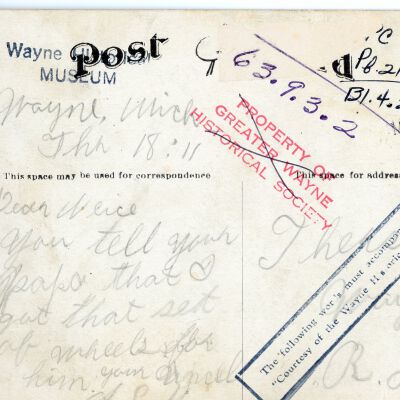 Wayne Historical
MUSEUM
Post
d
63.9.3.2
C
Pb.21
B1.4.2
PROPERTY OF
GREATER WAYNE
HISTORICAL SOCIETY
Wayne, Mich
18 11
This space may be used for correspondence
This space for address
Dear Niece
You tell your
papa that I
got that set
of wheels for
him your Uncle
The following words must accompan
"Courtesy of the Wayne Histori